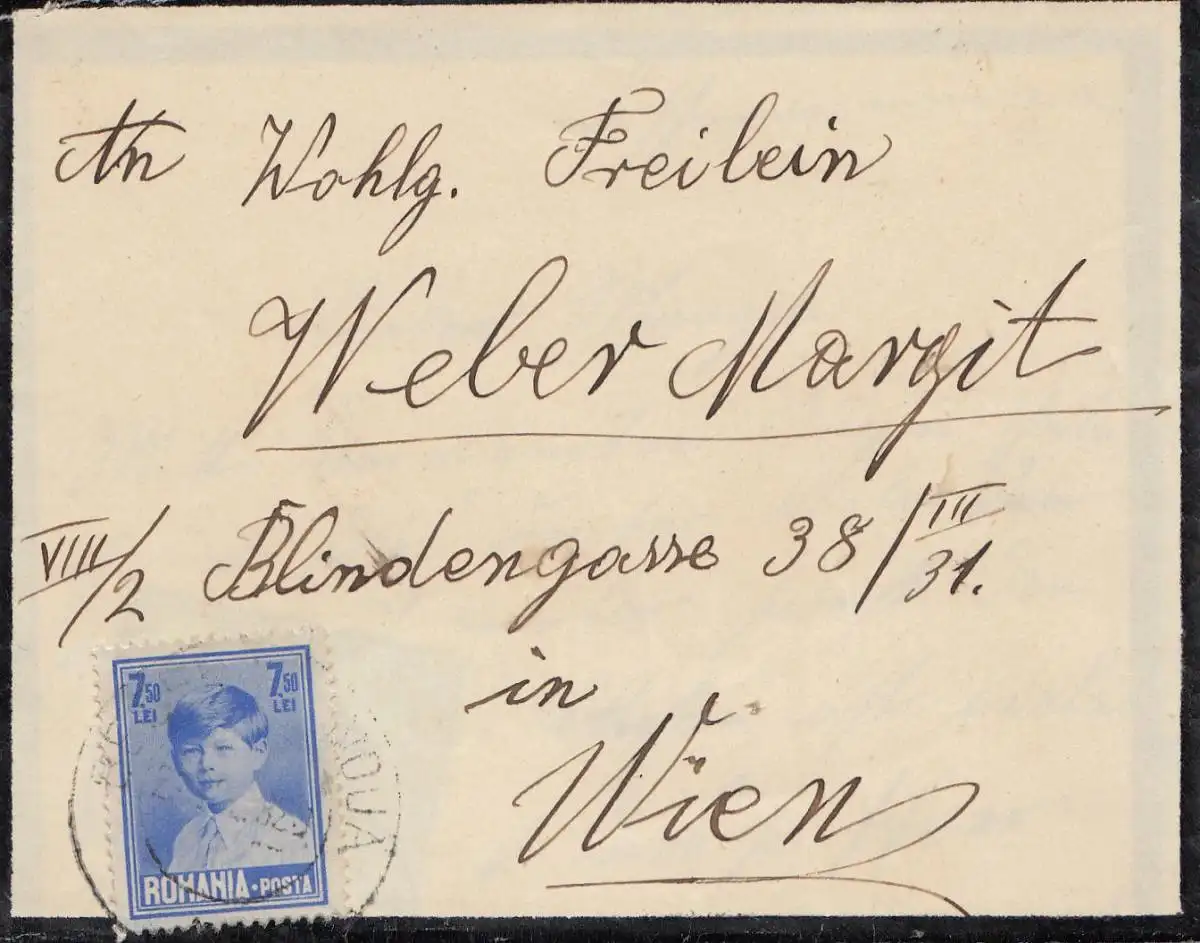 An Wohlg. Freilein
Weber Margit
VIII/2 Blindengasse 38/III
31.
in
Wien
7.50 LEI 7.50 LEI
ROMANIA·POSTA
NOUĂ